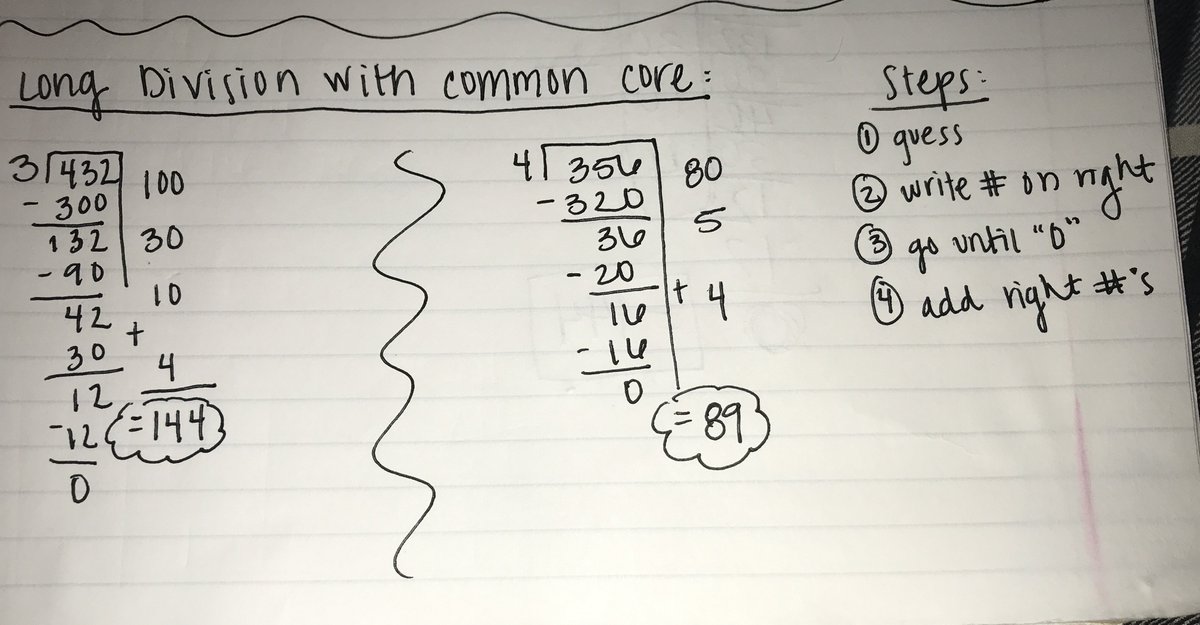 Long Division with common core:
3 432 100
- 300
132 30
- 90
10
42
+
30 4
12
-12 = 144
0
4 356 80
- 320
36 5
- 20
16 + 4
- 16
0
= 89
Steps:
① guess
② write # on right
③ go until "0"
④ add right #'s